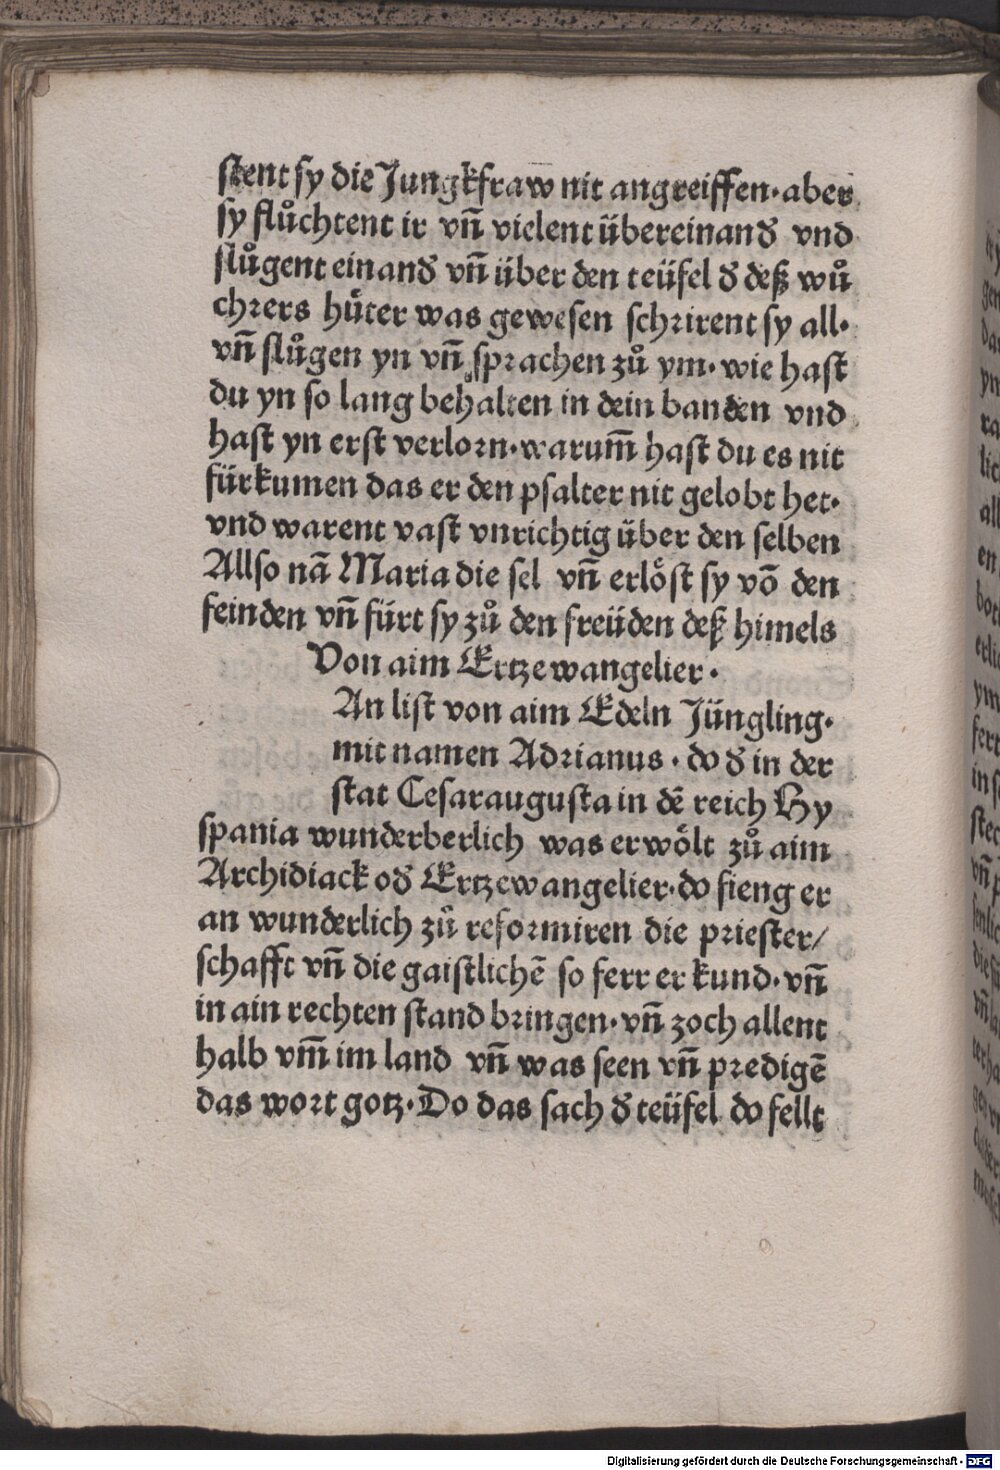 stent sy die Jungkfraw nit angreiffen·aber
sy flůchtent ir vñ vielent übereinand vnd
slůgent einand vñ über den teüfel d deß wů
chrers hůter was gewesen schrirent sy all·
vñ slůgen yn vñ sprachen zů ym·wie hast
du yn so lang behalten in dein banden vnd
hast yn erst verlorn·warum̄ hast du es nit
fürkumen das er den psalter nit gelobt het·
vnd warent vast vnrichtig über den selben
Allso nā Maria die sel vñ erlöst sy vō den
feinden vñ fürt sy zů den freüden deß himels
Von aim Ertzewangelier·
An list von aim Edeln Jüngling·
mit namen Adrianus·do d in der
stat Cesaraugusta in dē reich Hy
spania wunderberlich was erwölt zů aim
Archidiack od Ertzewangelier·do fieng er
an wunderlich zů reformiren die priester/
schafft vñ die gaistlichē so ferr er kund·vñ
in ain rechten stand bringen·vñ zoch allent
halb vm̄ im land vñ was seen vñ predigē
das wort gotz·Do das sach d teüfel do fellt
Digitalisierung gefördert durch die Deutsche Forschungsgemeinschaft - DFG